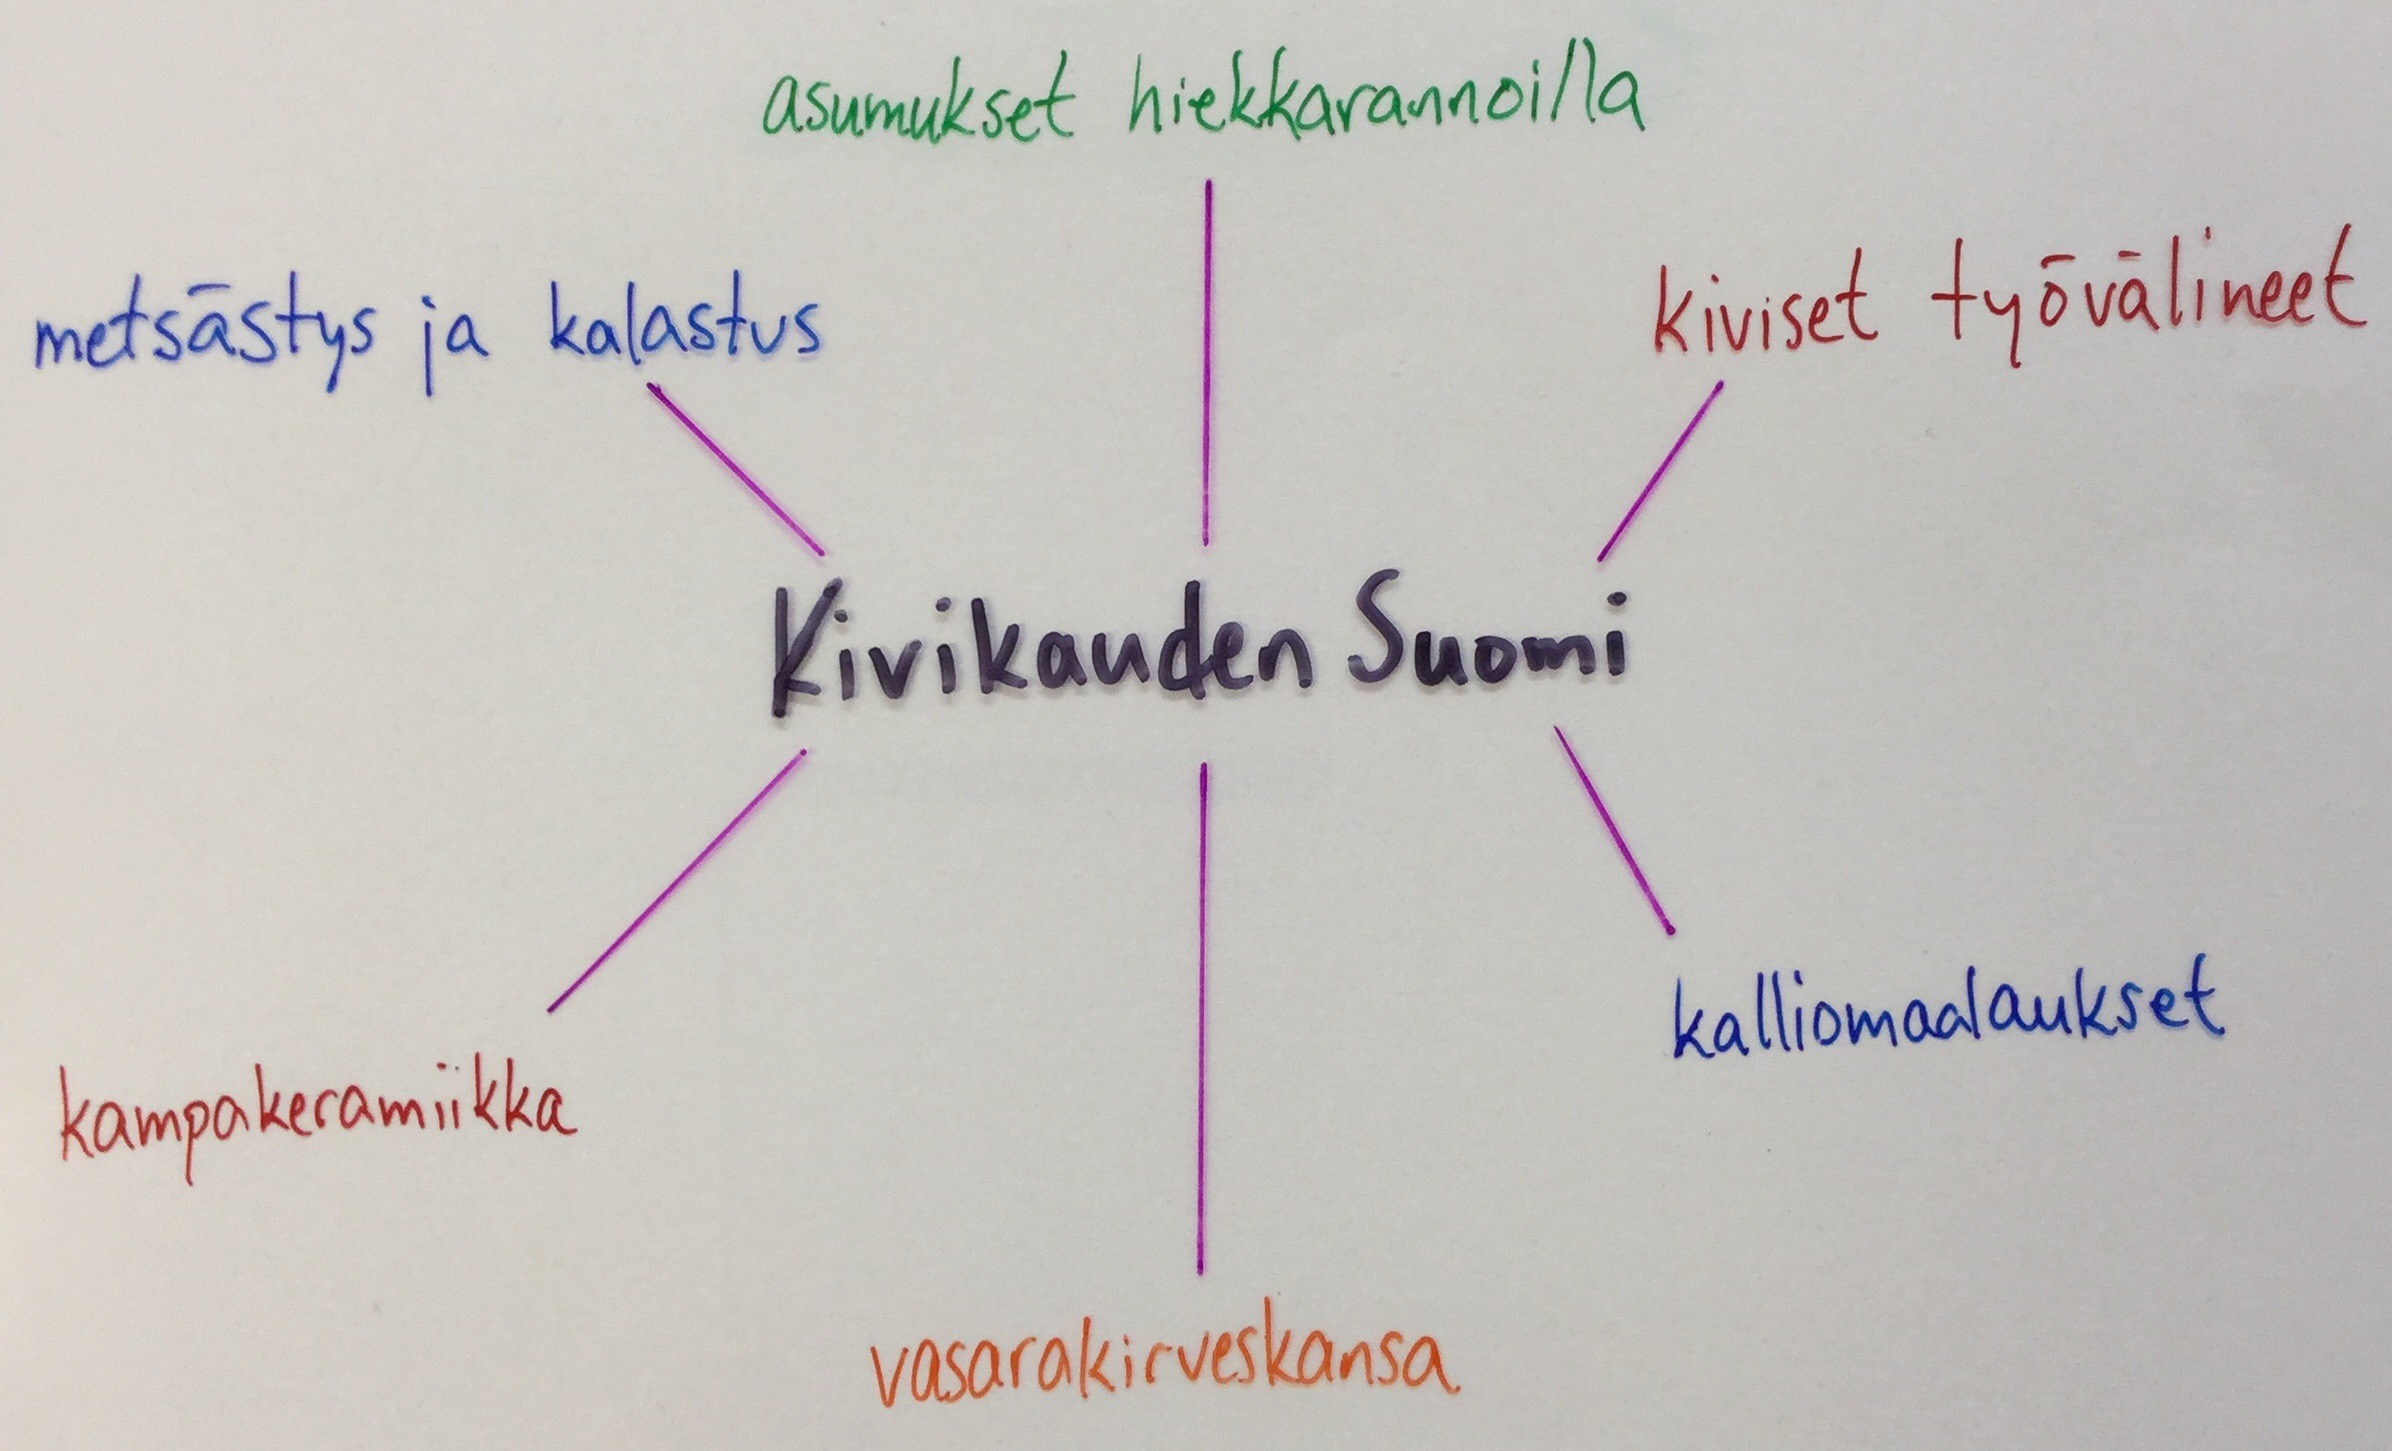 asumukset hiekkarannoilla
metsästys ja kalastus
kiviset työvälineet
Kivikauden Suomi
kalliomaalaukset
kampakeramiikka
vasarakirveskansa